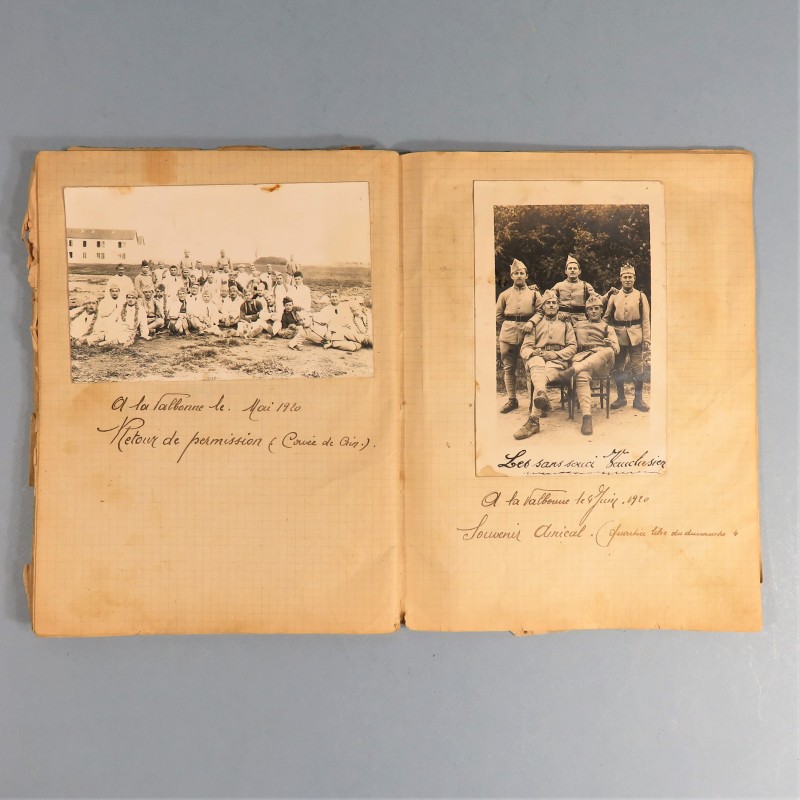 A la Valbonne le. Mai 1920
Retour de permission (Corvée de Gin.).
Les sans souci Vauclusien
A la Valbonne le 8 Juin. 1920
Souvenir Amical. (Quartier libre du dimanche